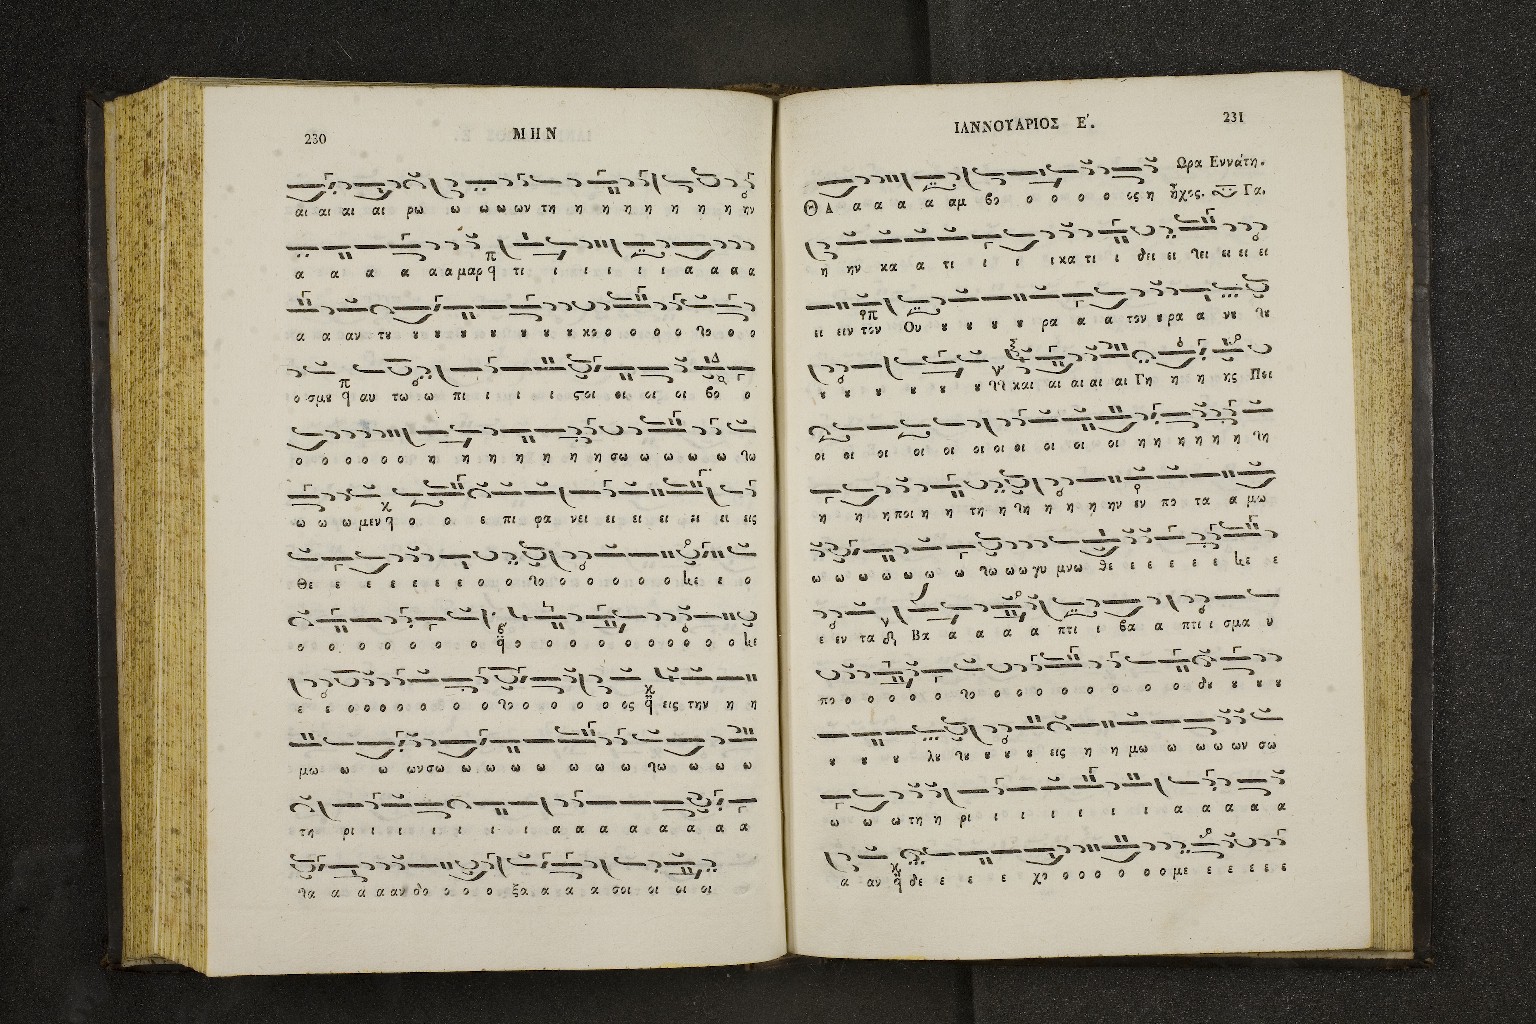 230
ΜΗΝ
αι αι αι αι ρω ω ω ω ων τη η η η η η η η ην
α α α α α α μαρ τι ι ι ι ι ι α α α α
α α αν τȣ ȣ ȣ ȣ ȣ ȣ ȣ ȣ κο ο ο ο ο ο ο
ο σμȣ αυ τω ω πι ι ι ι ςοι οι οι οι οι βο ο
ο ο ο ο ο ο η η η η η η η η σω ω ω ω ω
ω ω ω μεν ο ο ε πι φα νει ει ει ει ει ει ει εις
Θε ε ε ε ε ε ε ο ο ο ο ο ο ο ο ε ε ο
ο ο ο ο ο ο ο ο ο ο ο ο ο ο ο ο ο
ε ε ο ο ο ο ο ο ο ο ο ο ο ο ος εις την η η
μω ω ω ων σω ω ω ω ω ω ω ω ω ω ω
τη ρι ι ι ι ι ι ι α α α α α α α α
α α α α αν δο ο ο ο ξα α α α σοι οι οι οι
ΙΑΝΝΟΥΑΡΙΟΣ Ε΄.
231
Ωρα Εννάτη.
ΘΑ α α α α αμ βο ο ο ο ο ο ος η ἦχος. Γα.
η ην κα α τι ι ι ι κα τι ι δει ει ει ει ει ει
ει ειν τον Ου ȣ ȣ ȣ ȣ ρα α α τον ȣ ρα α νȣ
ȣ ȣ ȣ ȣ ȣ ȣ και αι αι αι αι Γη η η ης Ποι
οι οι οι οι οι οι οι οι οι οι οι η η η η η η
η η η ποι η η τη η η η η η ην εν πο τα α μω
ω ω ω ω ω ω ω ω ω γυ μνω θε ε ε ε ε ε ε
ε εν τα Βα α α α α πτι ι βα α πτι ι σμα υ
πο ο ο ο ο ο ο ο ο ο ο ο ο ο ο δȣ ȣ ȣ ȣ
ȣ ȣ ȣ λȣ ȣ ȣ ȣ εις η η μω ω ω ω ων σω
ω ω ω τη η ρι ι ι ι ι ι ι α α α α α
α αν δε ε ε ε ε χο ο ο ο ο ο ο με ε ε ε ε ε